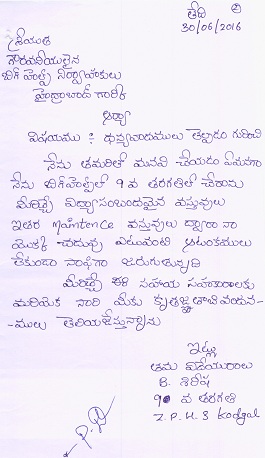 తేది
30/06/2016
శ్రీయుత
గౌరవనీయులైన
బిగ్ హెల్ప్ నిర్వాహకులు
హైద్రాబాద్ గారికి
ఆర్యా
విషయము : ధన్యవాదములు తెల్పడం గురించి
నేను తమరితో మనవి చేయడం ఏమనగా
నేను బిగ్‌హెల్ప్‌లో 9 వ తరగతిలో చేరాను
మీరిచ్చే విద్యాసంబంధమైన వస్తువులు
ఇతర Maintence వస్తువులు ద్వారా నా
యొక్క చదువు ఎటువంటి ఆటంకములు
లేకుండా సాఫీగా జరుగుతున్నది
మీరిచ్చే ఈ సహాయ సహకారాలకు
మరియొక సారి మీకు కృతజ్ఞతాభివందన-
-ములు తెలియజేస్తున్నాను
ఇట్లు
తమ విదేయురాలు
B. శిరీష
10 వ తరగతి
Z.P.H.S Kodgal